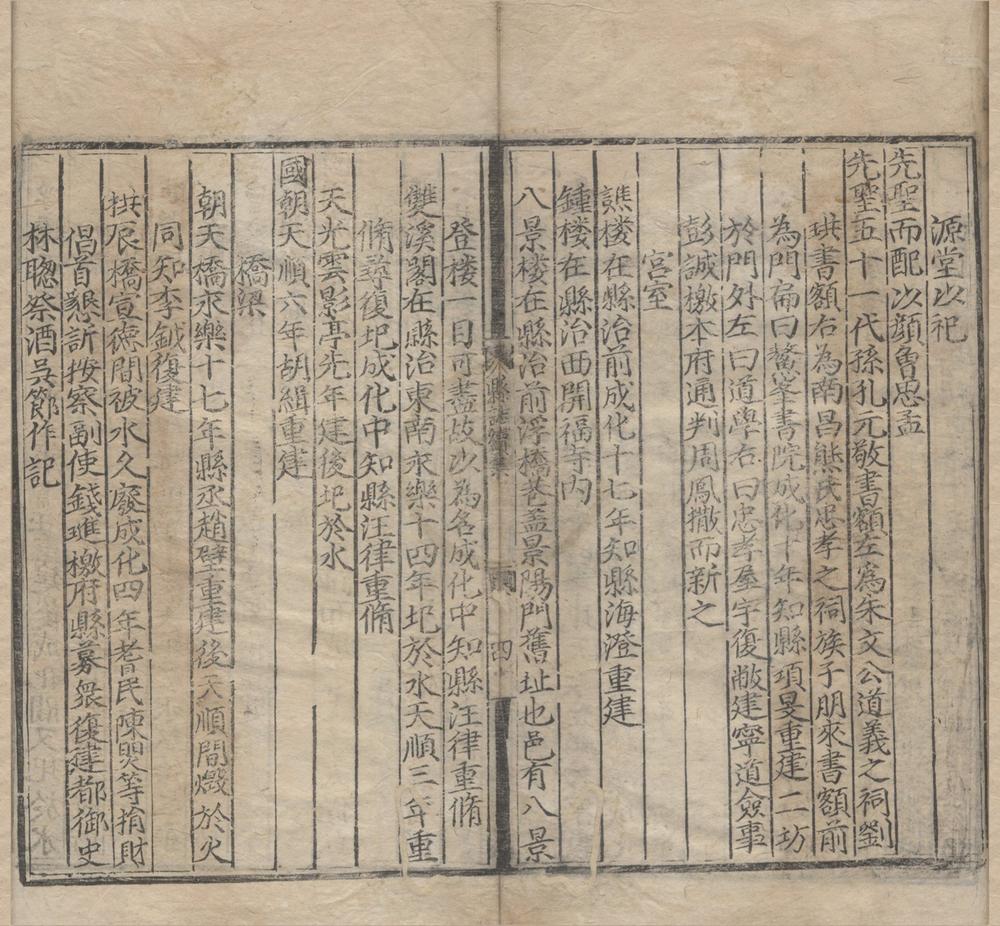 源堂以祀
先聖而配以顔魯忠孟
先聖五十一代孫孔元敬書額左爲朱文公道義之祠劉
珙書額右為南昌熊氏忠孝之祠族子朋來書額前
為門扁曰鰲峯書院成化十年知縣項旻重建二坊
於門外左曰道學右曰忠孝屋宇復敝建寧道僉事
彭誠檄本府通判周鳳撒而新之
宮室
譙楼在縣治前成化十七年知縣海澄重建
鍾楼在縣治西開福寺内
八景楼在縣治前浮橋巷盖景陽門舊址也邑有八景
縣誌續集
四
登楼一目可盡故以為名成化中知縣汪律重脩
雙溪閣在縣治東南永樂十四年圯於水天順三年重
脩尋復圯成化中知縣汪律重脩
天光雲影亭先年建後圯於水
國朝天順六年胡緝重建
橋梁
朝天橋永樂十七年縣丞趙壁重建後天順間燬於火
同知李鉞復建
拱辰橋宣德間被水久廢成化四年耆民陳㷼等捐財
倡首懇訴按察副使錢璡檄府縣募衆復建都御史
林聰祭酒吳節作記